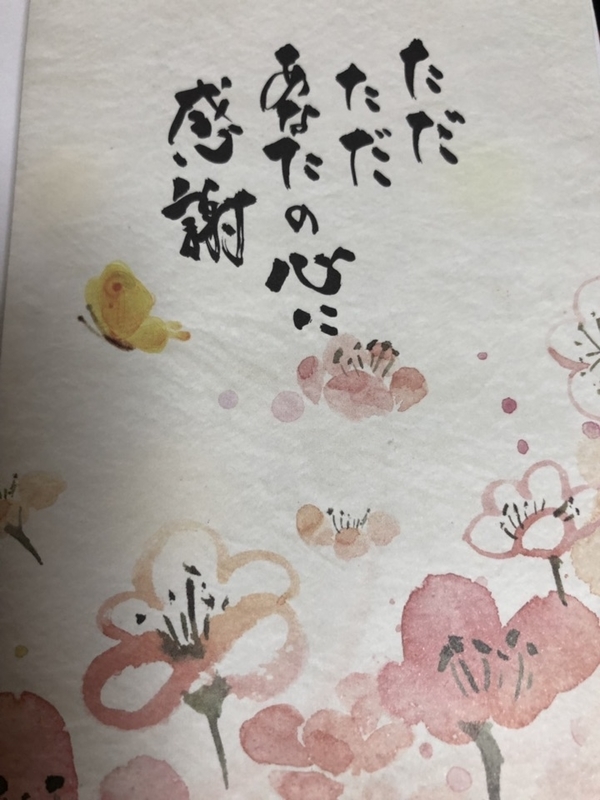 ただ
ただ
あなたの心に
感謝